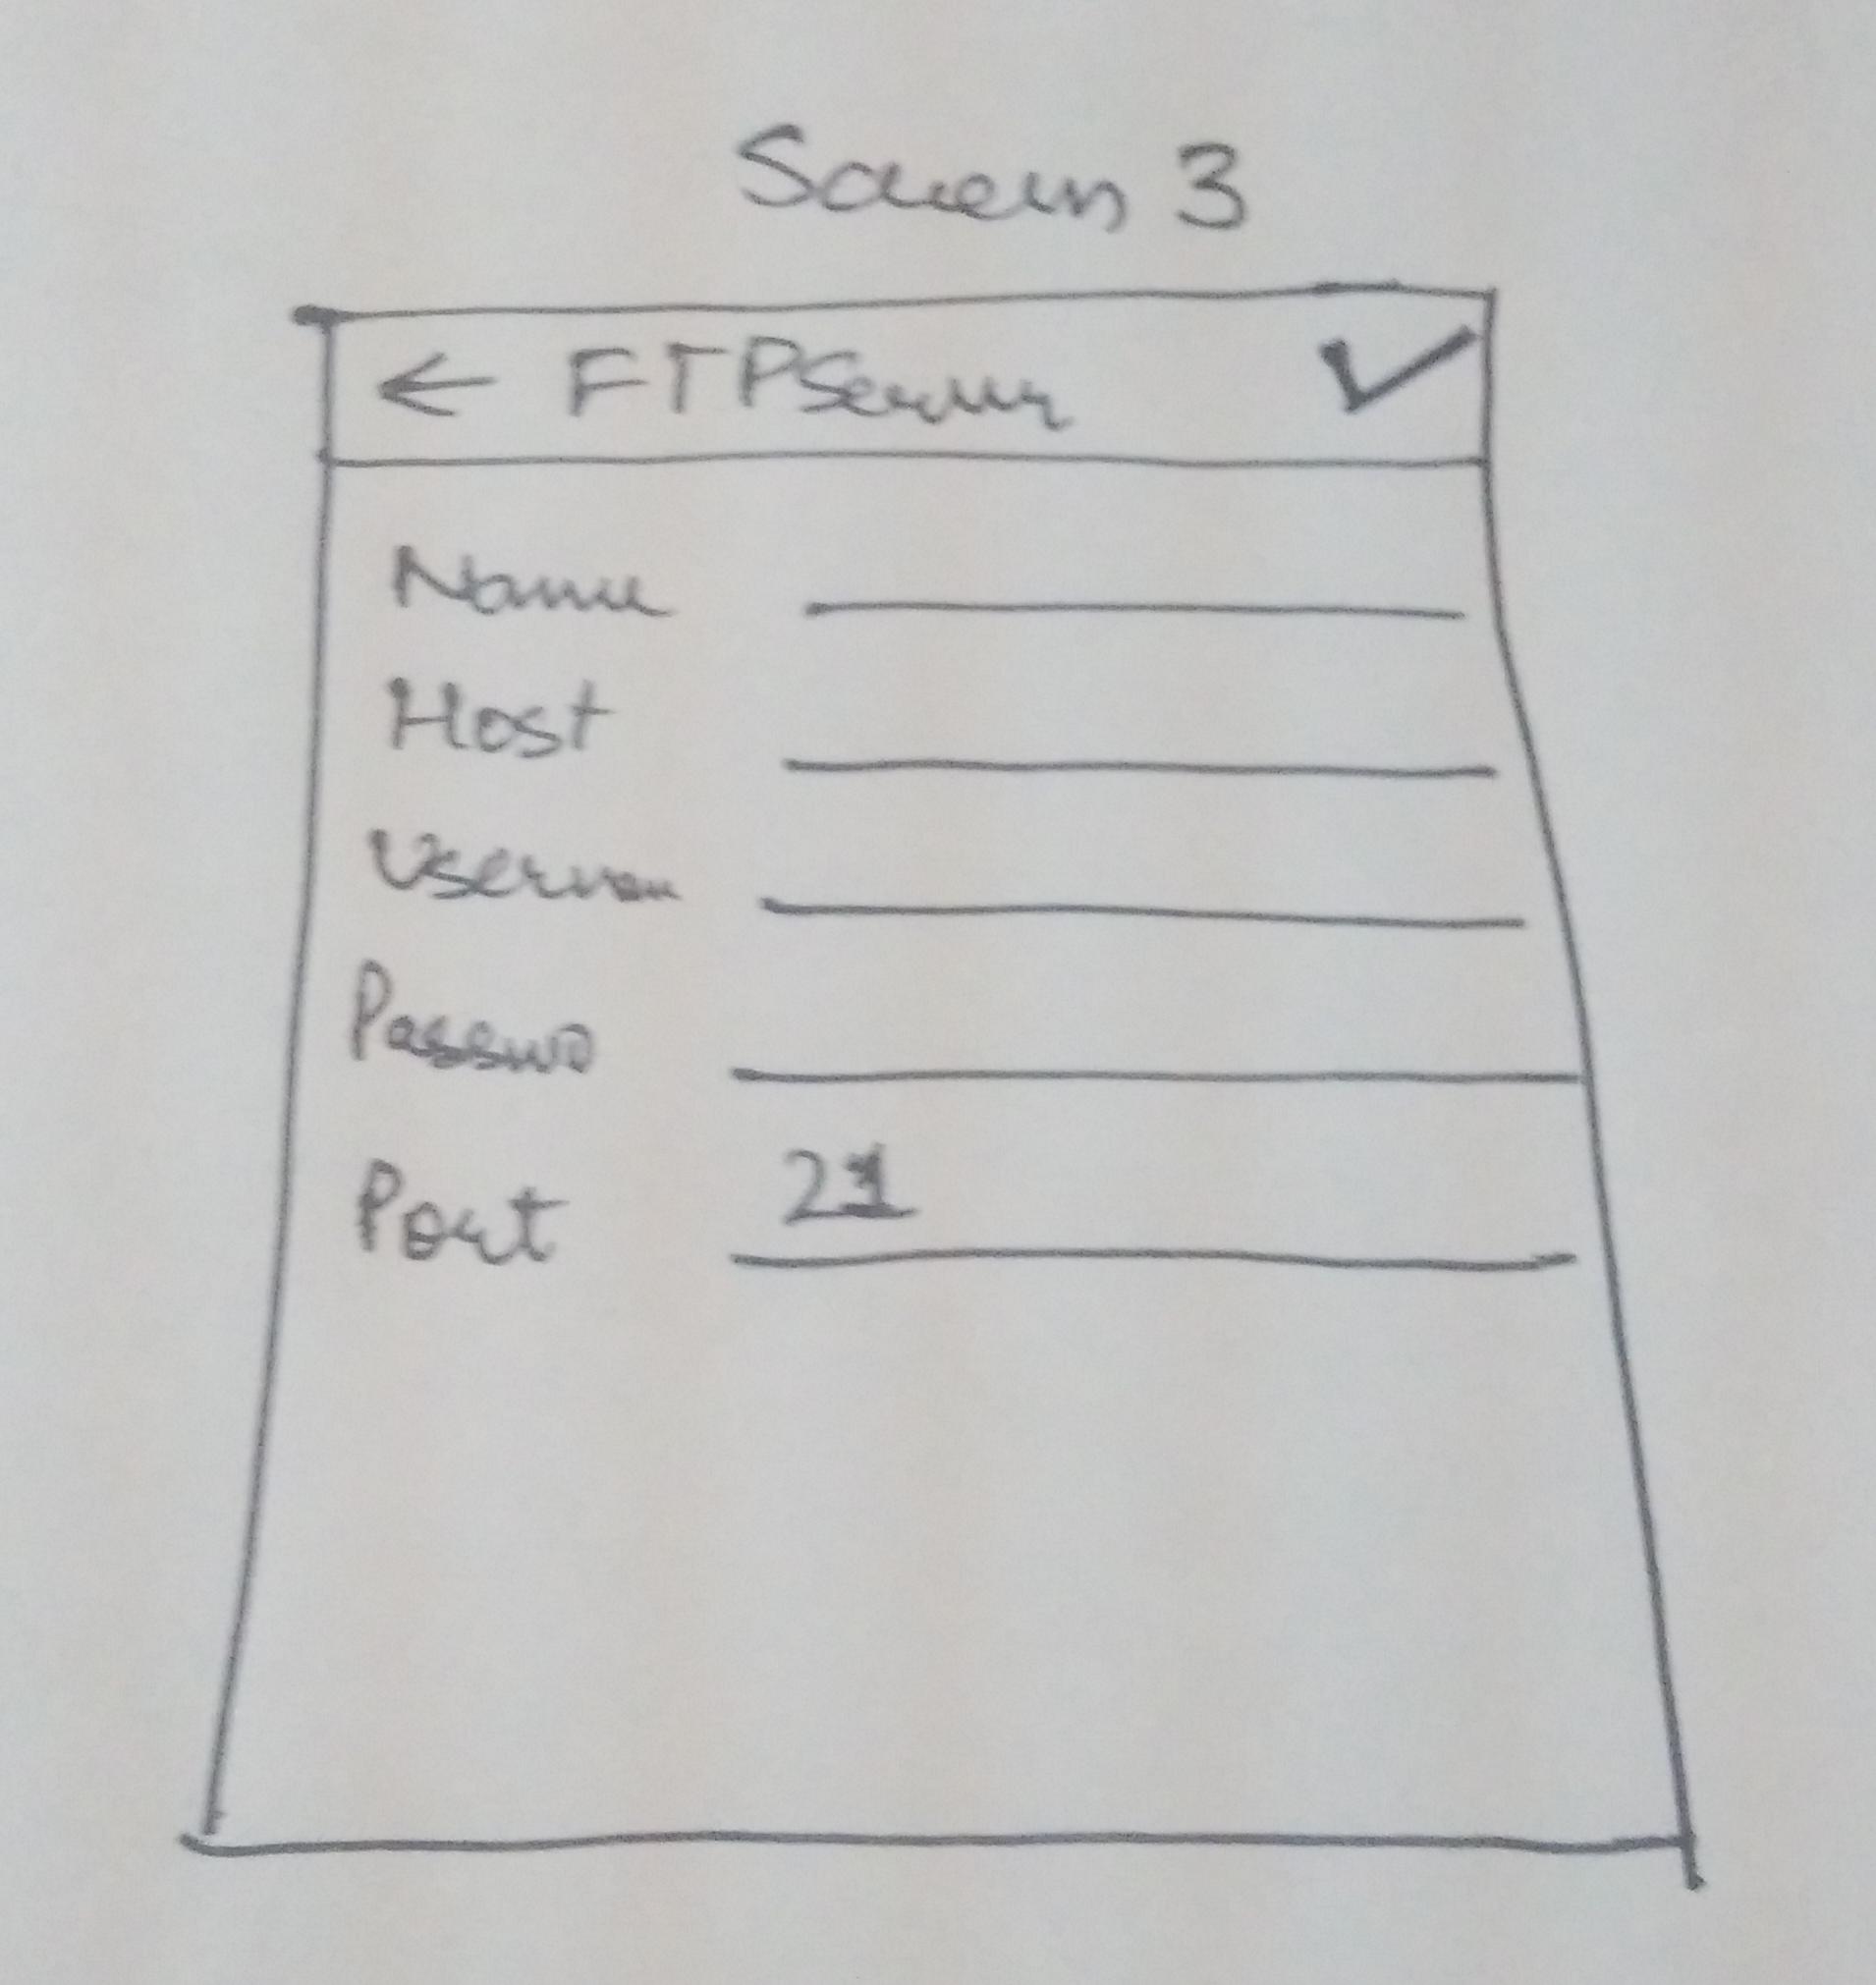 Screen 3
← FTPServer ✓
Name
Host
Usernam
Passwo
Port 21